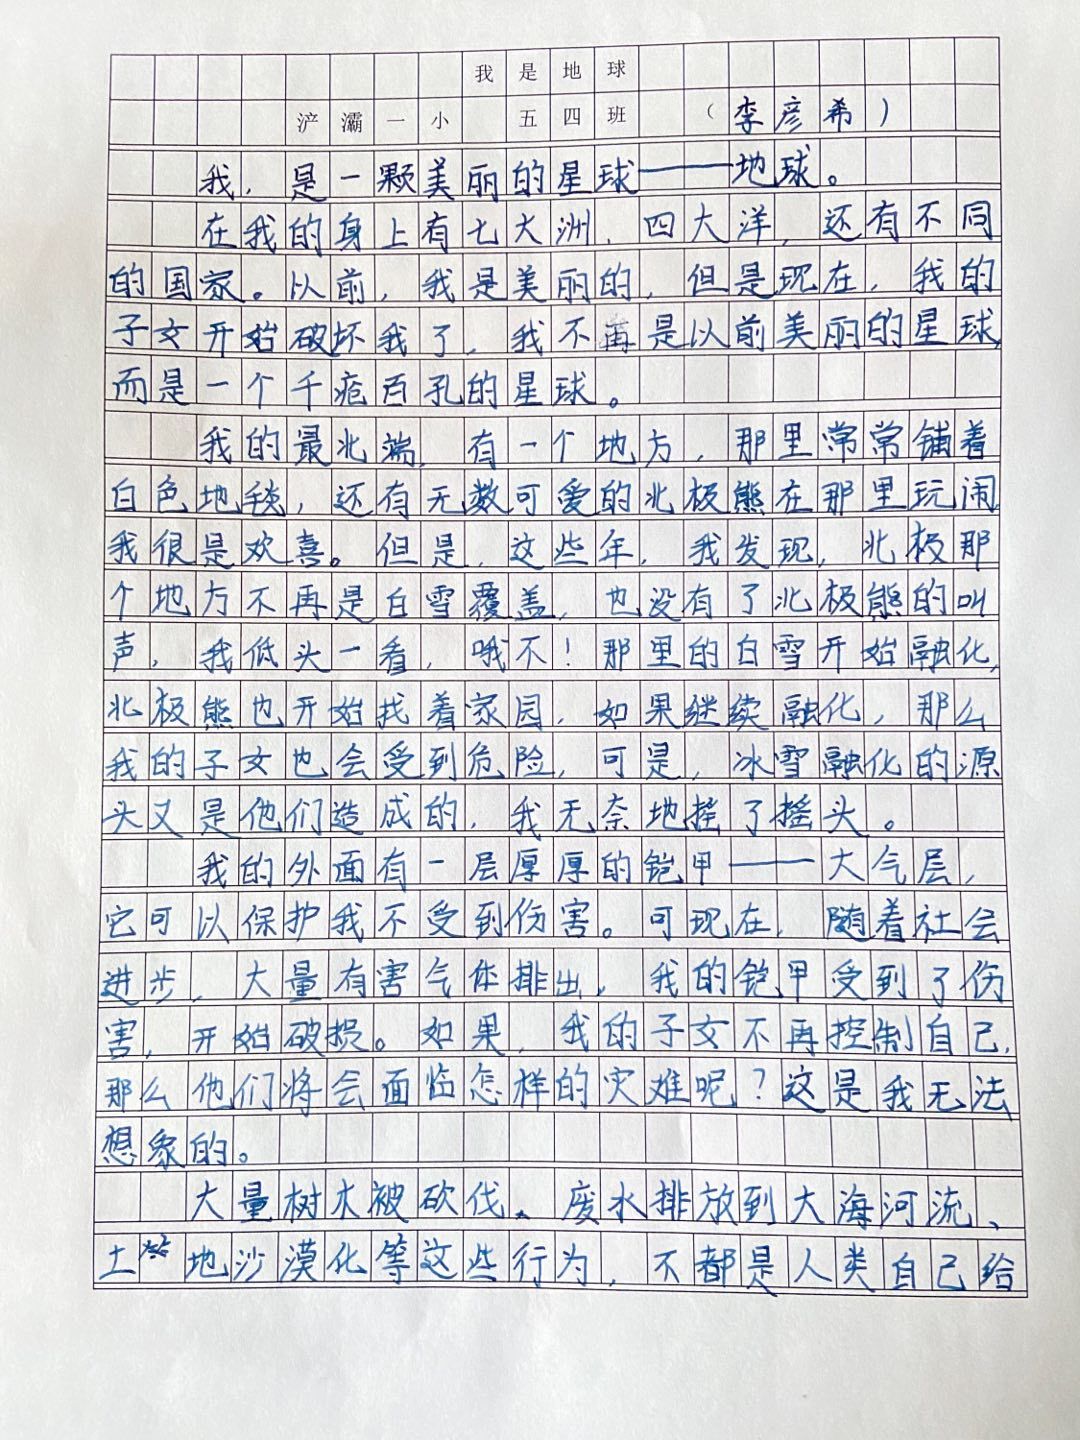 我是地球
浐灞一小 五四班 （李彦希）
我，是一颗美丽的星球——地球。
在我的身上有七大洲、四大洋，还有不同
的国家。以前，我是美丽的，但是现在，我的
子女开始破坏我了，我不再是以前美丽的星球，
而是一个千疮百孔的星球。
我的最北端，有一个地方，那里常常铺着
白色地毯，还有无数可爱的北极熊在那里玩闹，
我很是欢喜。但是，这些年，我发现，北极那
个地方不再是白雪覆盖，也没有了北极熊的叫
声，我低头一看，哦不！那里的白雪开始融化，
北极熊也开始找着家园，如果继续融化，那么
我的子女也会受到危险，可是，冰雪融化的源
头又是他们造成的，我无奈地摇了摇头。
我的外面有一层厚厚的铠甲——大气层，
它可以保护我不受到伤害。可现在，随着社会
进步，大量有害气体排出，我的铠甲受到了伤
害，开始破损。如果，我的子女不再控制自己，
那么他们将会面临怎样的灾难呢？这是我无法
想象的。
大量树木被砍伐、废水排放到大海河流、
土地沙漠化等这些行为，不都是人类自己给